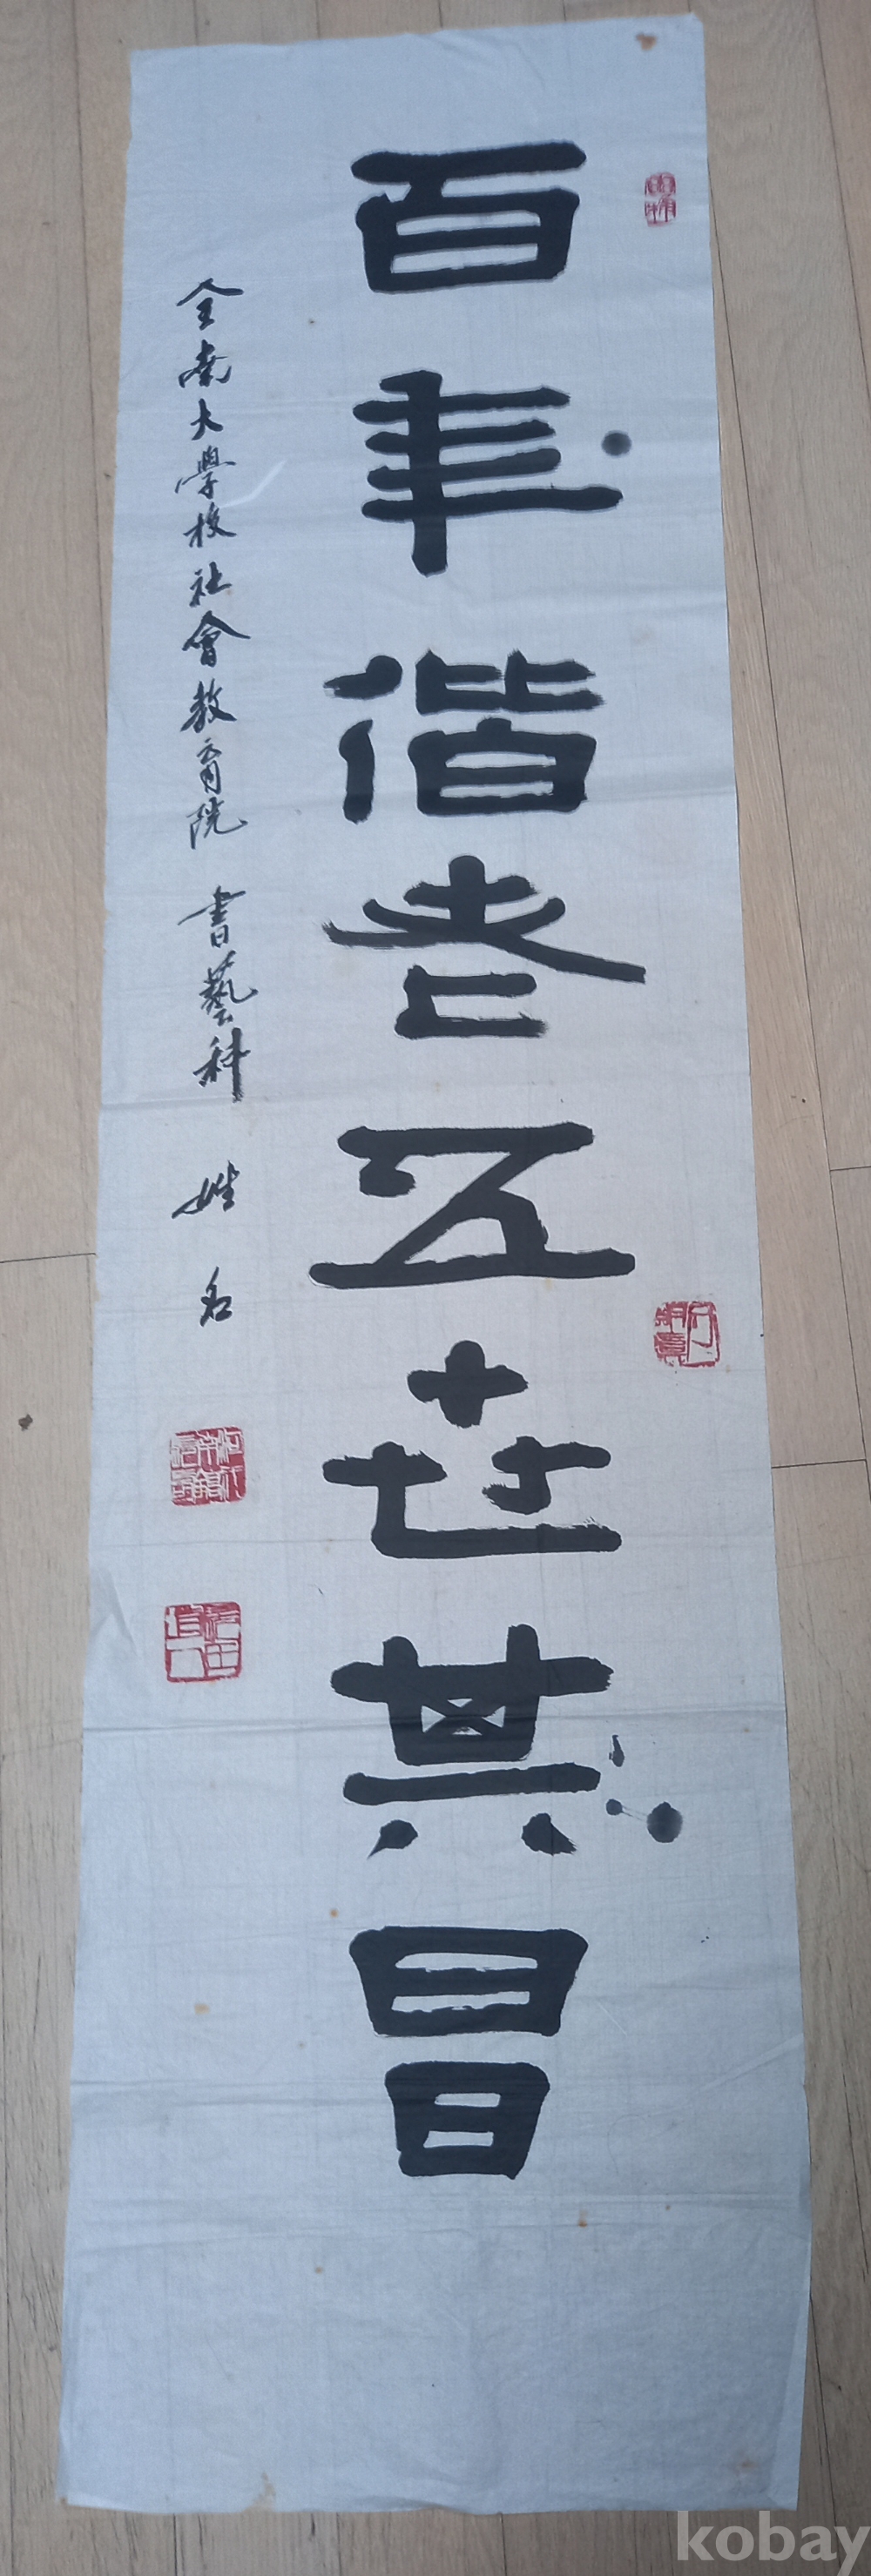 百年偕老五世其昌
全南大學校社會敎育院 書藝科 姓名
kobay